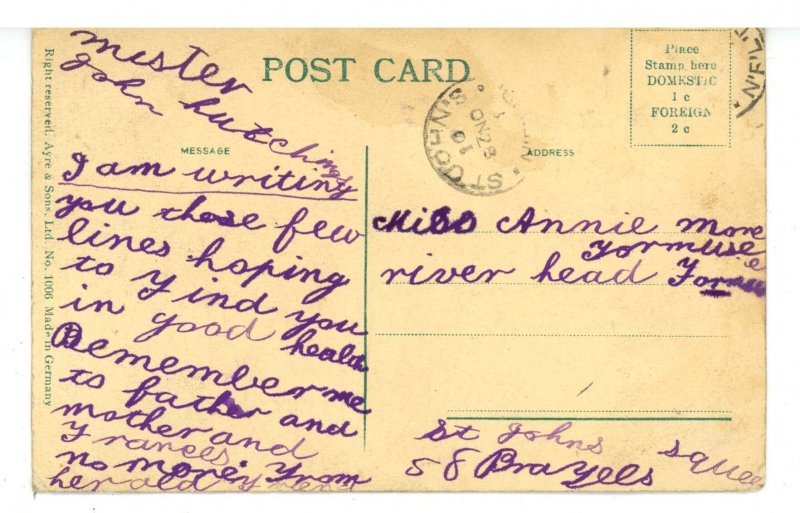 mester
john hutchings
POST CARD
Place
Stamp here
DOMESTIC
1 c
FOREIGN
2 c
MESSAGE
ADDRESS
I am writing
you those few
lines hoping
to find you
in good health
Remember me
to father and
mother and
frances
no more from
her old friend
Miss Annie more
river head
St johns
58 Brazels squee
ST JOHN'S
Right reserved. Ayre & Sons, Ltd. No. 1006 Made in Germany